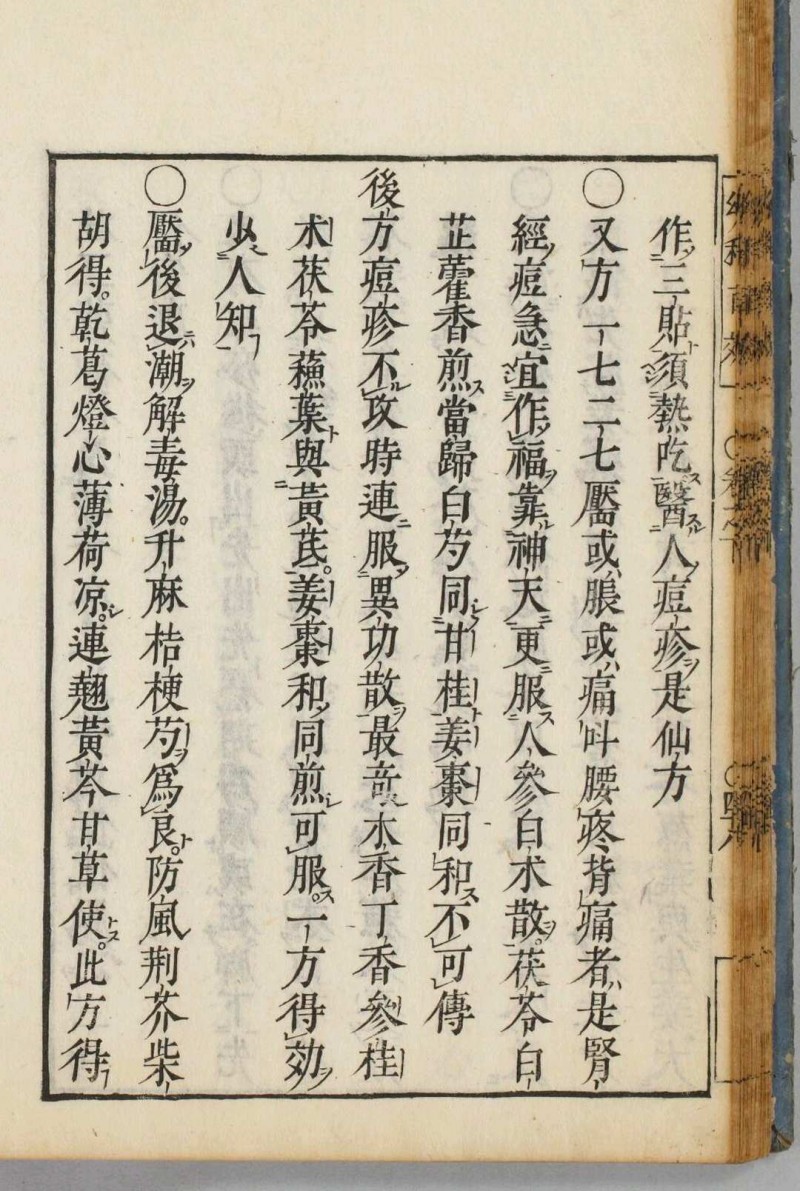 作三貼須熱吃醫人痘疹是仙方
〇又方一七二七靨或脹或痛叫腰疼背痛者是腎
經痘急宜作福靠神天更服人參白朮散茯苓白
芷藿香煎當歸白芍同甘桂姜棗同和不可傳
後方痘疹不攻時連服異功散最竒木香丁香參桂
朮茯苓蘓葉與黃芪姜棗和同煎可服一方得効
少人知
〇靨後退潮解毒湯升麻桔梗芍爲良防風荆芥柴
胡得乾葛燈心薄荷凉連翹黃芩甘草使此方得